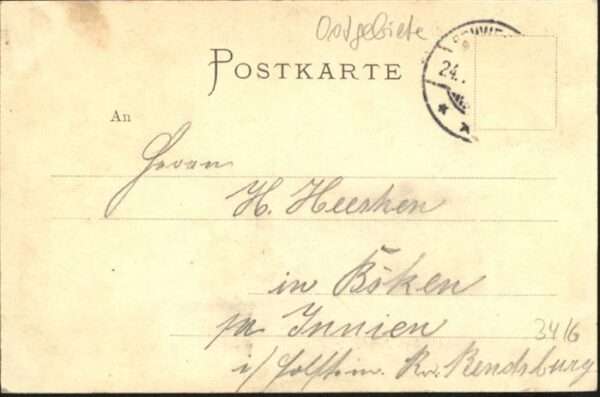 Ostgebiete
SCHWIE
POSTKARTE
24.
An
Herrn
H. Heeshen
in Böken
pr Innien
i/Holstein. Kr. Rendsburg
3416